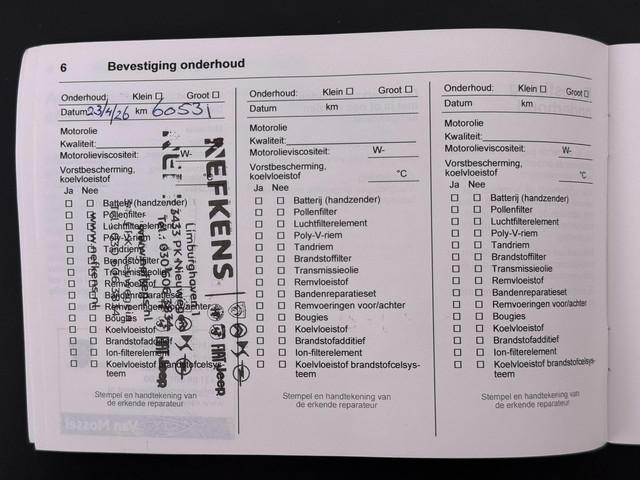 6 Bevestiging onderhoud
Onderhoud: Klein ☐ Groot ☐
Datum 23/4/26 km 60531
Motorolie
Kwaliteit:
Motorolieviscositeit: W-
Vorstbescherming,
koelvloeistof
Ja Nee
☐ ☐ Batterij (handzender)
☐ ☐ Pollenfilter
☐ ☐ Luchtfilterelement
☐ ☐ Poly-V-riem
☐ ☐ Tandriem
☐ ☐ Brandstoffilter
☐ ☐ Transmissieolie
☐ ☐ Remvloeistof
☐ ☐ Bandenreparatieset
☐ ☐ Remvoeringen voor/achter
☐ ☐ Bougies
☐ ☐ Koelvloeistof
☐ ☐ Brandstofadditief
☐ ☐ Ion-filterelement
☐ ☐ Koelvloeistof brandstofcelsys-
teem
Stempel en handtekening van
de erkende reparateur
NEFKENS
Limburghaven
3433 PK Nieuwegein
Jeep
Onderhoud: Klein ☐ Groot ☐
Datum km
Motorolie
Kwaliteit:
Motorolieviscositeit: W-
Vorstbescherming,
koelvloeistof °C
Ja Nee
☐ ☐ Batterij (handzender)
☐ ☐ Pollenfilter
☐ ☐ Luchtfilterelement
☐ ☐ Poly-V-riem
☐ ☐ Tandriem
☐ ☐ Brandstoffilter
☐ ☐ Transmissieolie
☐ ☐ Remvloeistof
☐ ☐ Bandenreparatieset
☐ ☐ Remvoeringen voor/achter
☐ ☐ Bougies
☐ ☐ Koelvloeistof
☐ ☐ Brandstofadditief
☐ ☐ Ion-filterelement
☐ ☐ Koelvloeistof brandstofcelsys-
teem
Stempel en handtekening van
de erkende reparateur
Onderhoud: Klein ☐ Groot ☐
Datum km
Motorolie
Kwaliteit:
Motorolieviscositeit: W-
Vorstbescherming,
koelvloeistof °C
Ja Nee
☐ ☐ Batterij (handzender)
☐ ☐ Pollenfilter
☐ ☐ Luchtfilterelement
☐ ☐ Poly-V-riem
☐ ☐ Tandriem
☐ ☐ Brandstoffilter
☐ ☐ Transmissieolie
☐ ☐ Remvloeistof
☐ ☐ Bandenreparatieset
☐ ☐ Remvoeringen voor/achter
☐ ☐ Bougies
☐ ☐ Koelvloeistof
☐ ☐ Brandstofadditief
☐ ☐ Ion-filterelement
☐ ☐ Koelvloeistof brandstofcelsys-
teem
Stempel en handtekening van
de erkende reparateur